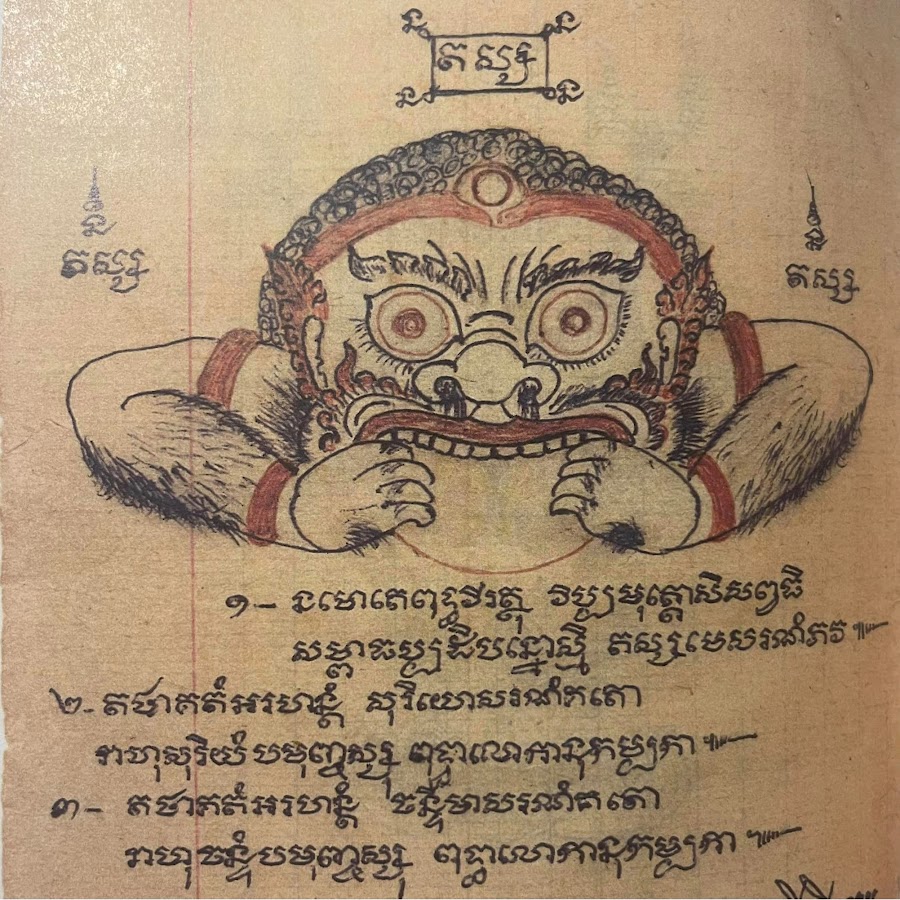 ន ន
តស្ស
ន ន
តស្ស តស្ស
១- នមោតេពុទ្ធវីរត្ថុ វិប្បមុត្តោសិសព្វធិ
សម្ពាធប្បដិបន្នោស្មិ តស្សមេសរណំភវ
២- តថាគតំអរហន្តំ សុរិយោសរណំគតោ
រាហុសុរិយំបមុញ្ចស្សុ ពុទ្ធាលោកានុកម្បកា
៣- តថាគតំអរហន្តំ ចន្ទិមាសរណំគតោ
រាហុចន្ទំបមុញ្ចស្សុ ពុទ្ធាលោកានុកម្បកា